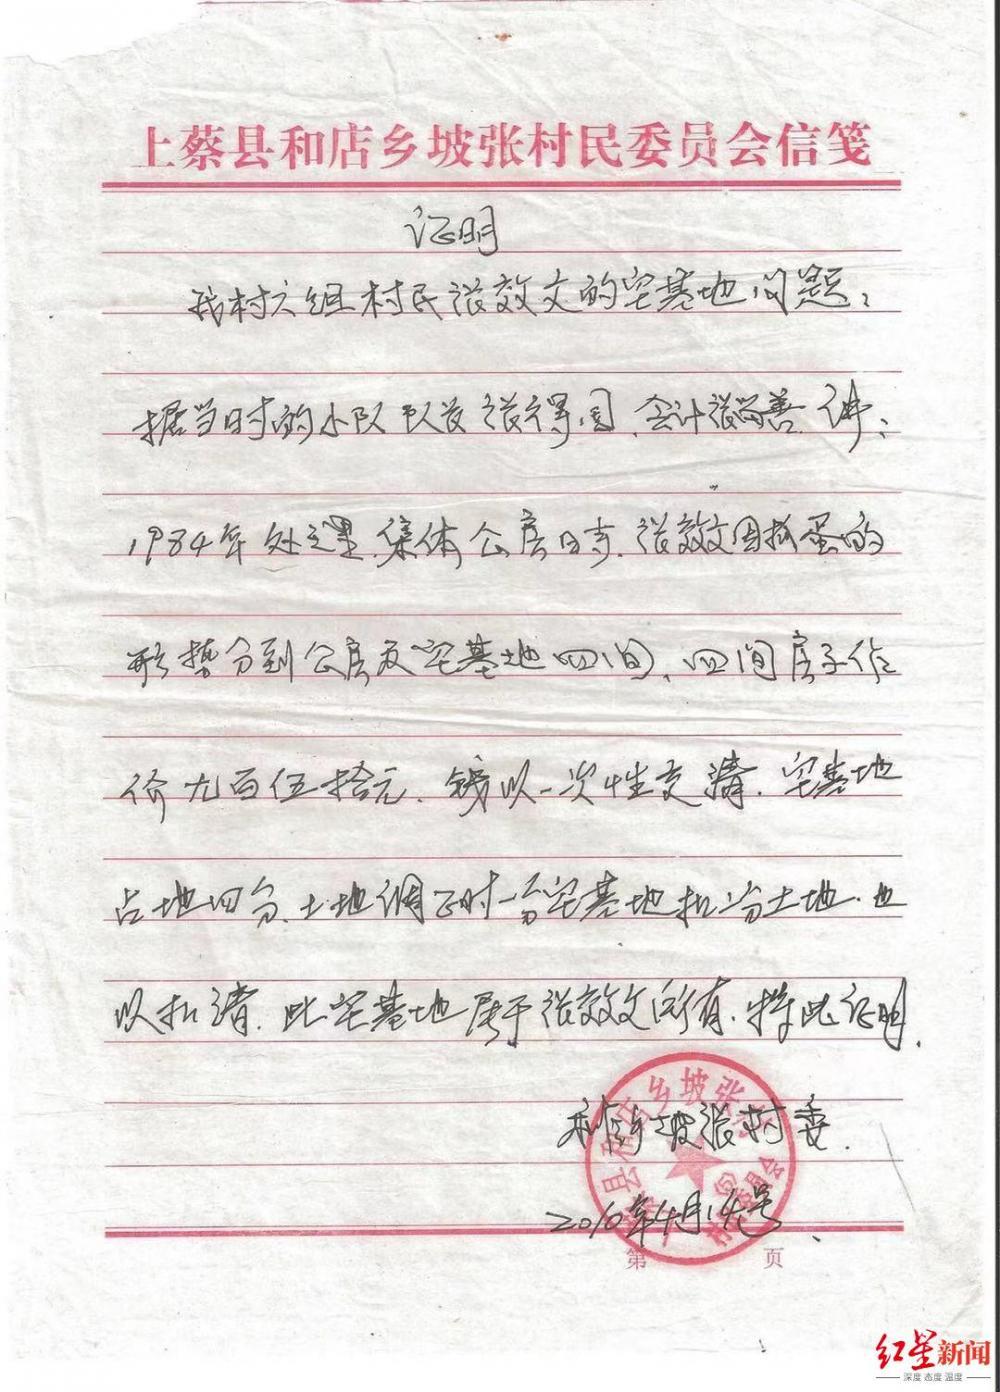 上蔡县和店乡坡张村民委员会信笺
证明
我村六组村民张效文的宅基地问题：
据当时的小队队长张得园、会计张尚善讲：
1984年处理集体公房时、张效文因抓蛋的
形势分到公房及宅基地四间、四间房子作
价九百伍拾元、钱以一次性交清、宅基地
占地四分、土地调正时一分宅基地扣一分土地、也
以扣清、此宅基地属于张效文所有、特此证明、
和店乡坡张村委、
2010年4月14号、
第 页
红星新闻
深度 态度 温度